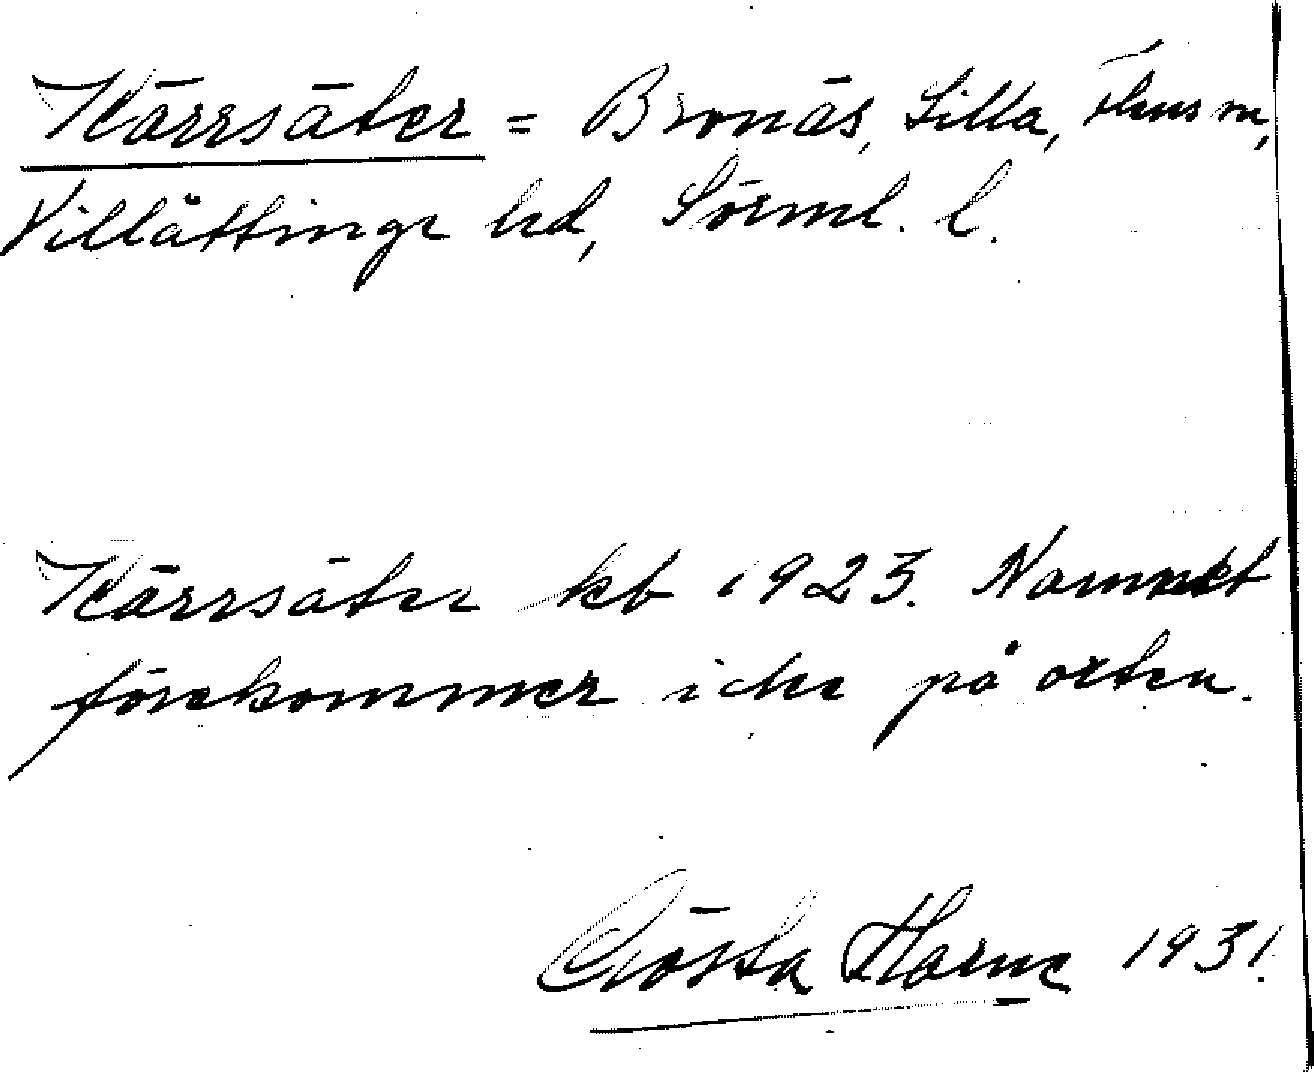 Kärrsäter = Bronäs, Lilla, Flens sn,
Villåttinge hd, Sörml. l.
Kärrsäter kb 1923. Namnet
förekommer icke på orten.
Gösta Horne 1931.